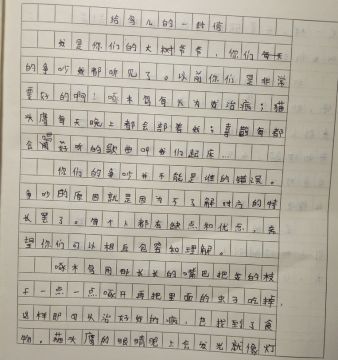 给鸟儿的一封信
我是你们的大树爷爷，你们每天
的争吵我都听见了。以前你们是非常
要好的啊！啄木鸟每天为我治病；猫
头鹰每天晚上都会部着我；喜鹊每都
会唱好听的歌曲叫我们起床…
你们的争吵并不能是谁的错误。
争吵的原因就是因为不了解对方的特
长是了。每个人都有缺点和优点，希
望你们可以相互包容和理解。
啄木鸟用那长长的嘴巴把我的树
干一点一点啄开再把里面的虫子吃掉，
这样即可以治好我的病，也找到了食
物。猫头鹰的眼睛晚上会发光就像灯